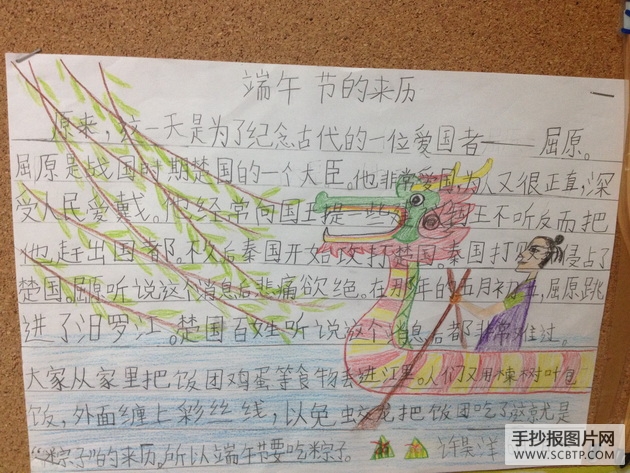 端午 节的来历
原来,这一天是为了纪念古代的一位爱国者——屈原。
屈原是战国时期楚国的一个大臣。他非常爱国,为人又很正直,深
受人民爱戴。他经常向国王提一些 国王不听反而把
他赶出国都。不久后秦国开始攻打楚国。秦国打 侵占了
楚国。屈原听说这个消息后悲痛欲绝。在那年的五月初五,屈原跳
进了汨罗江。楚国百姓听说这个消息后都非常难过。
大家从家里把饭团鸡蛋等食物丢进江里。人们又用楝树叶包
饭,外面缠上彩丝线,以免蛟龙把饭团吃了这就是
“粽子”的来历。所以端午节要吃粽子。 许昊洋
手抄报图片网
WWW.SCBTP.COM